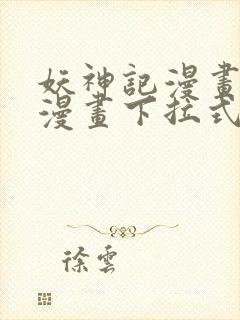 妖神記漫畫
漫畫下拉式
徐雲